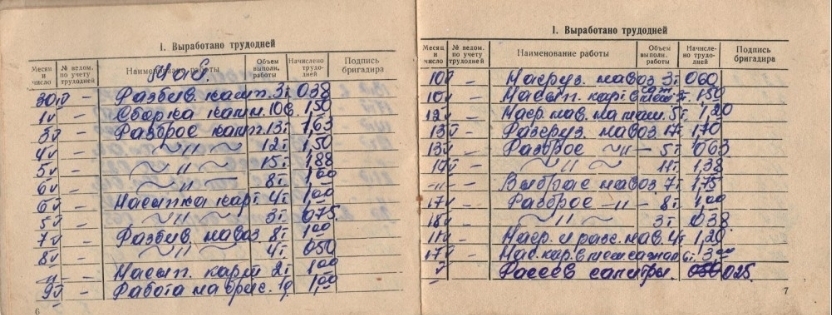 I. Выработано трудодней
Месяц и число № ведом. по учету трудодней Наименование работы Объем выполн. работы Начислено трудодней Подпись бригадира
Май
30 IV — Разбив. камн. 3т 038
1 V — Сборка камн. 10 1,50
3 V — Разброс камн. 13т 1,63
4 V — ~ " ~ 12т 1,50
5 V — ~ " ~ 15т 1,88
6 V — ~ " ~ 8т 1,00
6 V — Насыпка карт 4т 1,00
5 V — ~ " ~ 3т 075
7 V — Разбив. навоз 8т 1,00
8 V — ~ " ~ 4т 050
" — Насып. карт 2т 1,00
9 V — Работа на 1,00
6
I. Выработано трудодней
Месяц и число № ведом. по учету трудодней Наименование работы Объем выполн. работы Начислено трудодней Подпись бригадира
10 V — Нагруз. навоз 3т 060
10 V — Насып. карт. 1,50
12 V — Нагр. нав. на 5т 1,20
13 V — Разгруз. навоз 17т 1,70
13 V — Разброс ~ " — 5т 063
14 V — ~ " ~ 11т 1,38
" — Выброс навоз 7т 1,75
17 V — Разброс — " — 8т 1,00
18 V — ~ " ~ 3т 038
11 V — Нагр. и разг. нав. 4т 1,20
17 V — Нас. кар. в 3,00
V Рассев селитры. 025
7